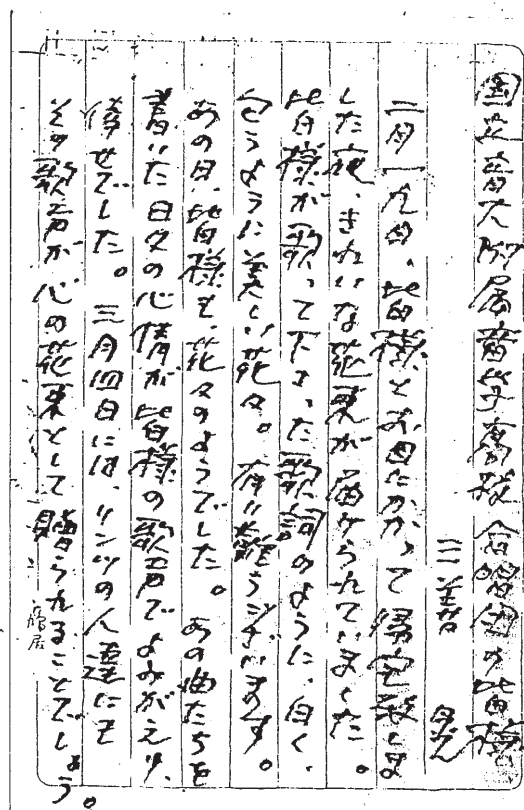 国立音大附属音楽高校合唱団の皆様
三善 晃
二月一九日、皆様とお目にかかって帰宅致しま
した夜、きれいな花束が届けられていました。
皆様が歌って下さった歌詞のように、白く、
匂うように美しい花々。有り難うございます。
あの日、皆様も、花々のようでした。あの曲たちを
書いた日々の心情が皆様の歌声でよみがえり、
倖せでした。三月四日には、リンツの人達にも
その歌声が心の花束として贈られることでしょう。